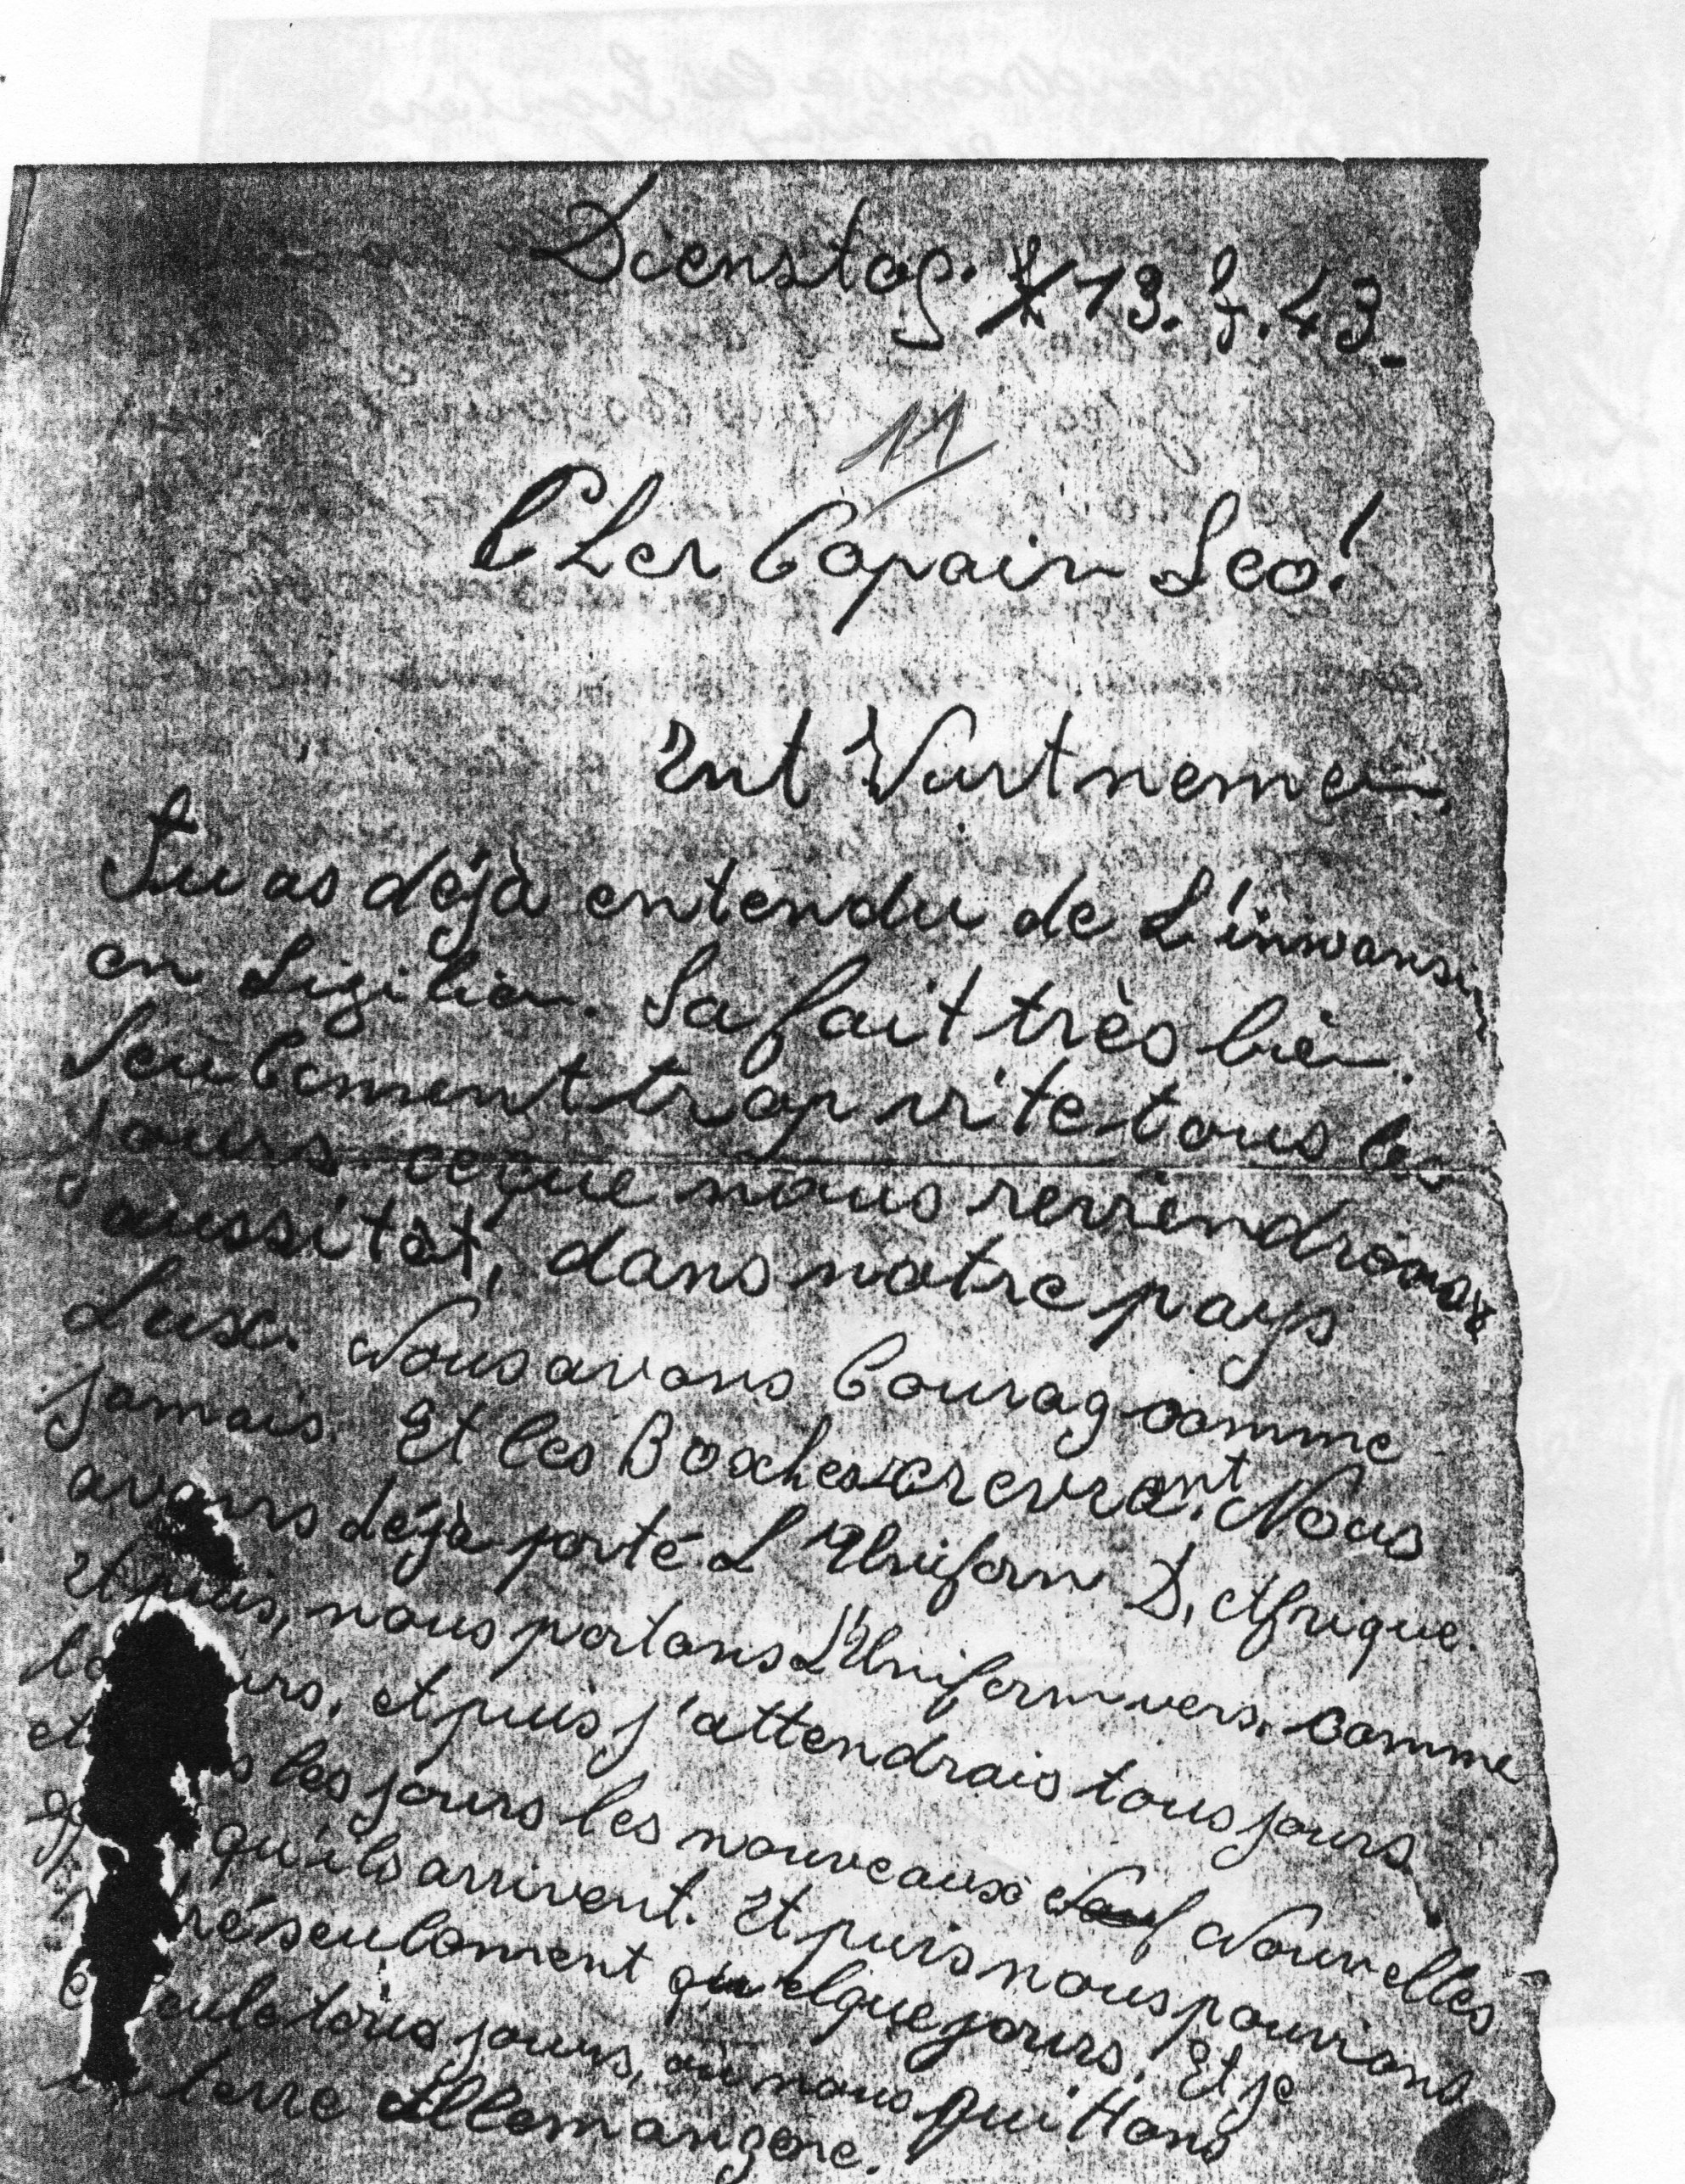 Dienstag. 13. 7. 43.
11
CHer Copain Leo!
Ent Wartnemer.
Tu as déjà entendu de L'inwansi
en Sizilien. Sa fait très bien.
Seulement trop vite tous les
jours ceque nous reviendrons
aussitôt, dans notre pays
Lux. Nous avons Courag comme
jamais. Et les Boches crevront. Nous
avons déjà porté L'Uniform D, Afrique.
Et puis, nous portons L'Uniform vers. comme
urs, et puis j'attendrais tous jours
et s les jours les nouveaux Nouvelles
qu'ils arrivent. Et puis nous pouvions
réseulament quelque jours. Et je
tous jours, où nous quittons
terre Allemangne.